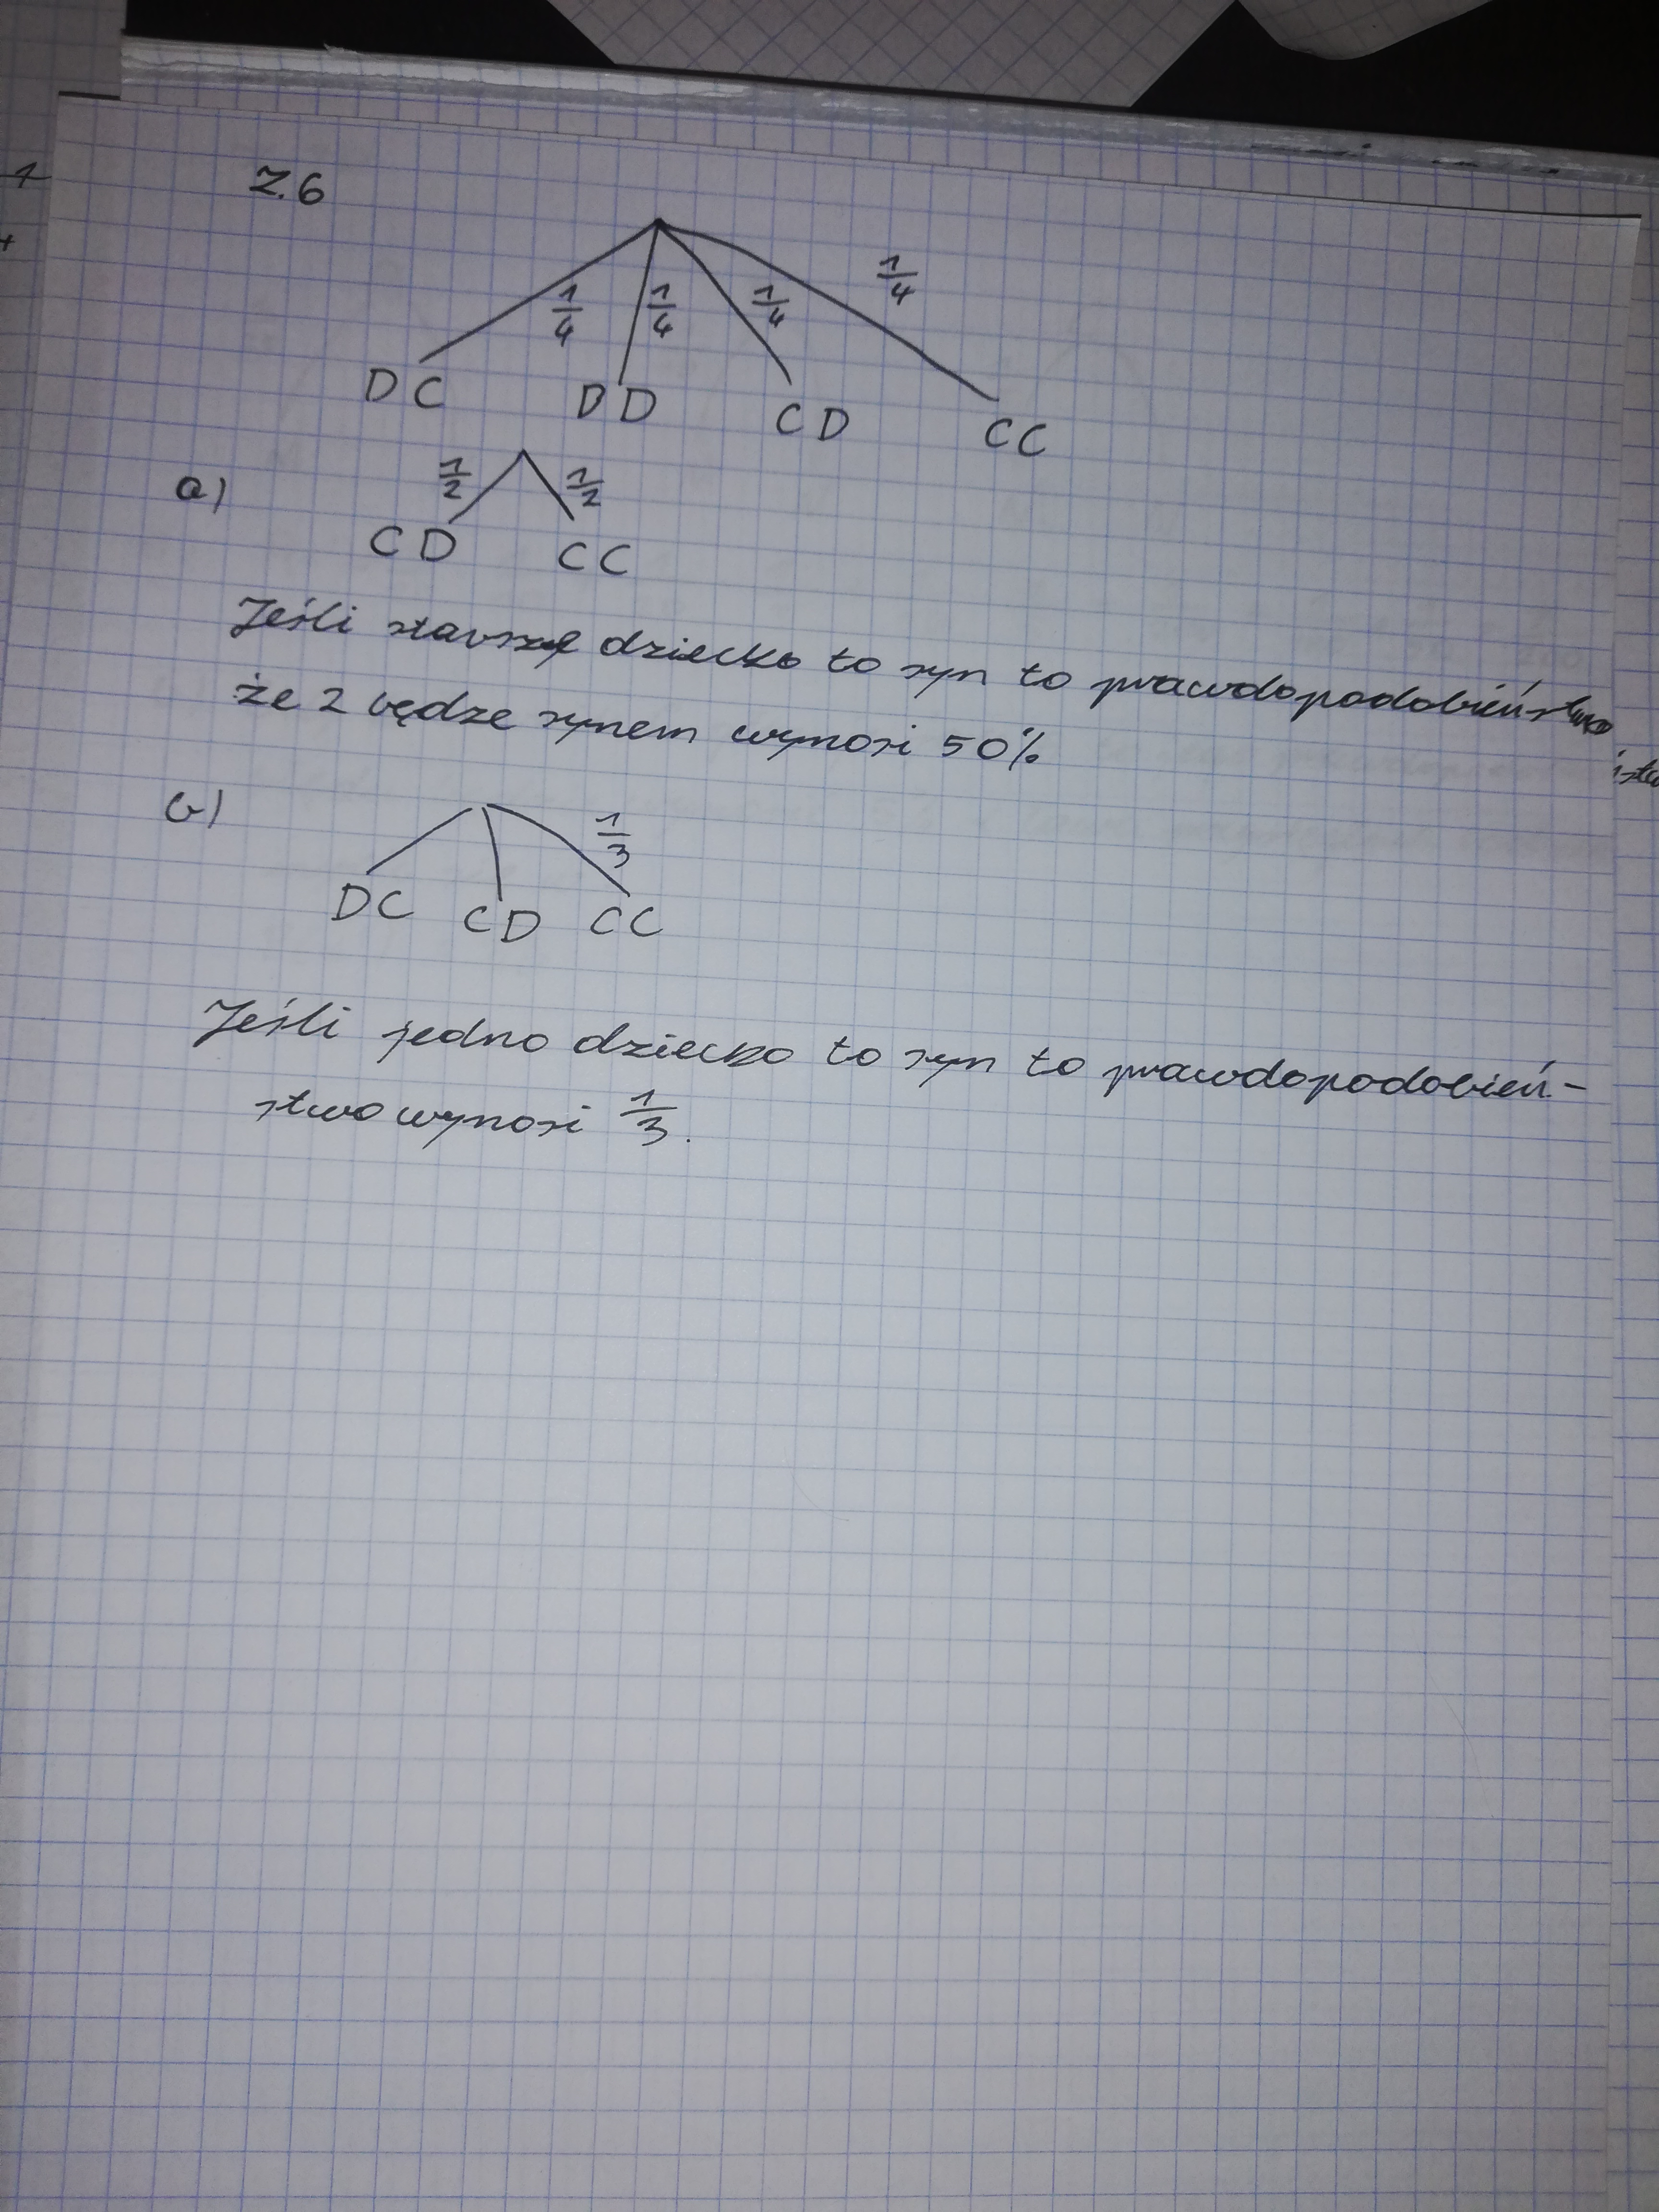 Z.6
1/4 1/4 1/4 1/4
DC DD CD CC
a)
1/2 1/2
CD CC
Jeśli starsze dziecko to syn to prawdopodobieństwo
że 2 będze synem wynosi 50%
b)
1/3
DC CD CC
Jeśli jedno dziecko to syn to prawdopodobień-
stwo wynosi 1/3.